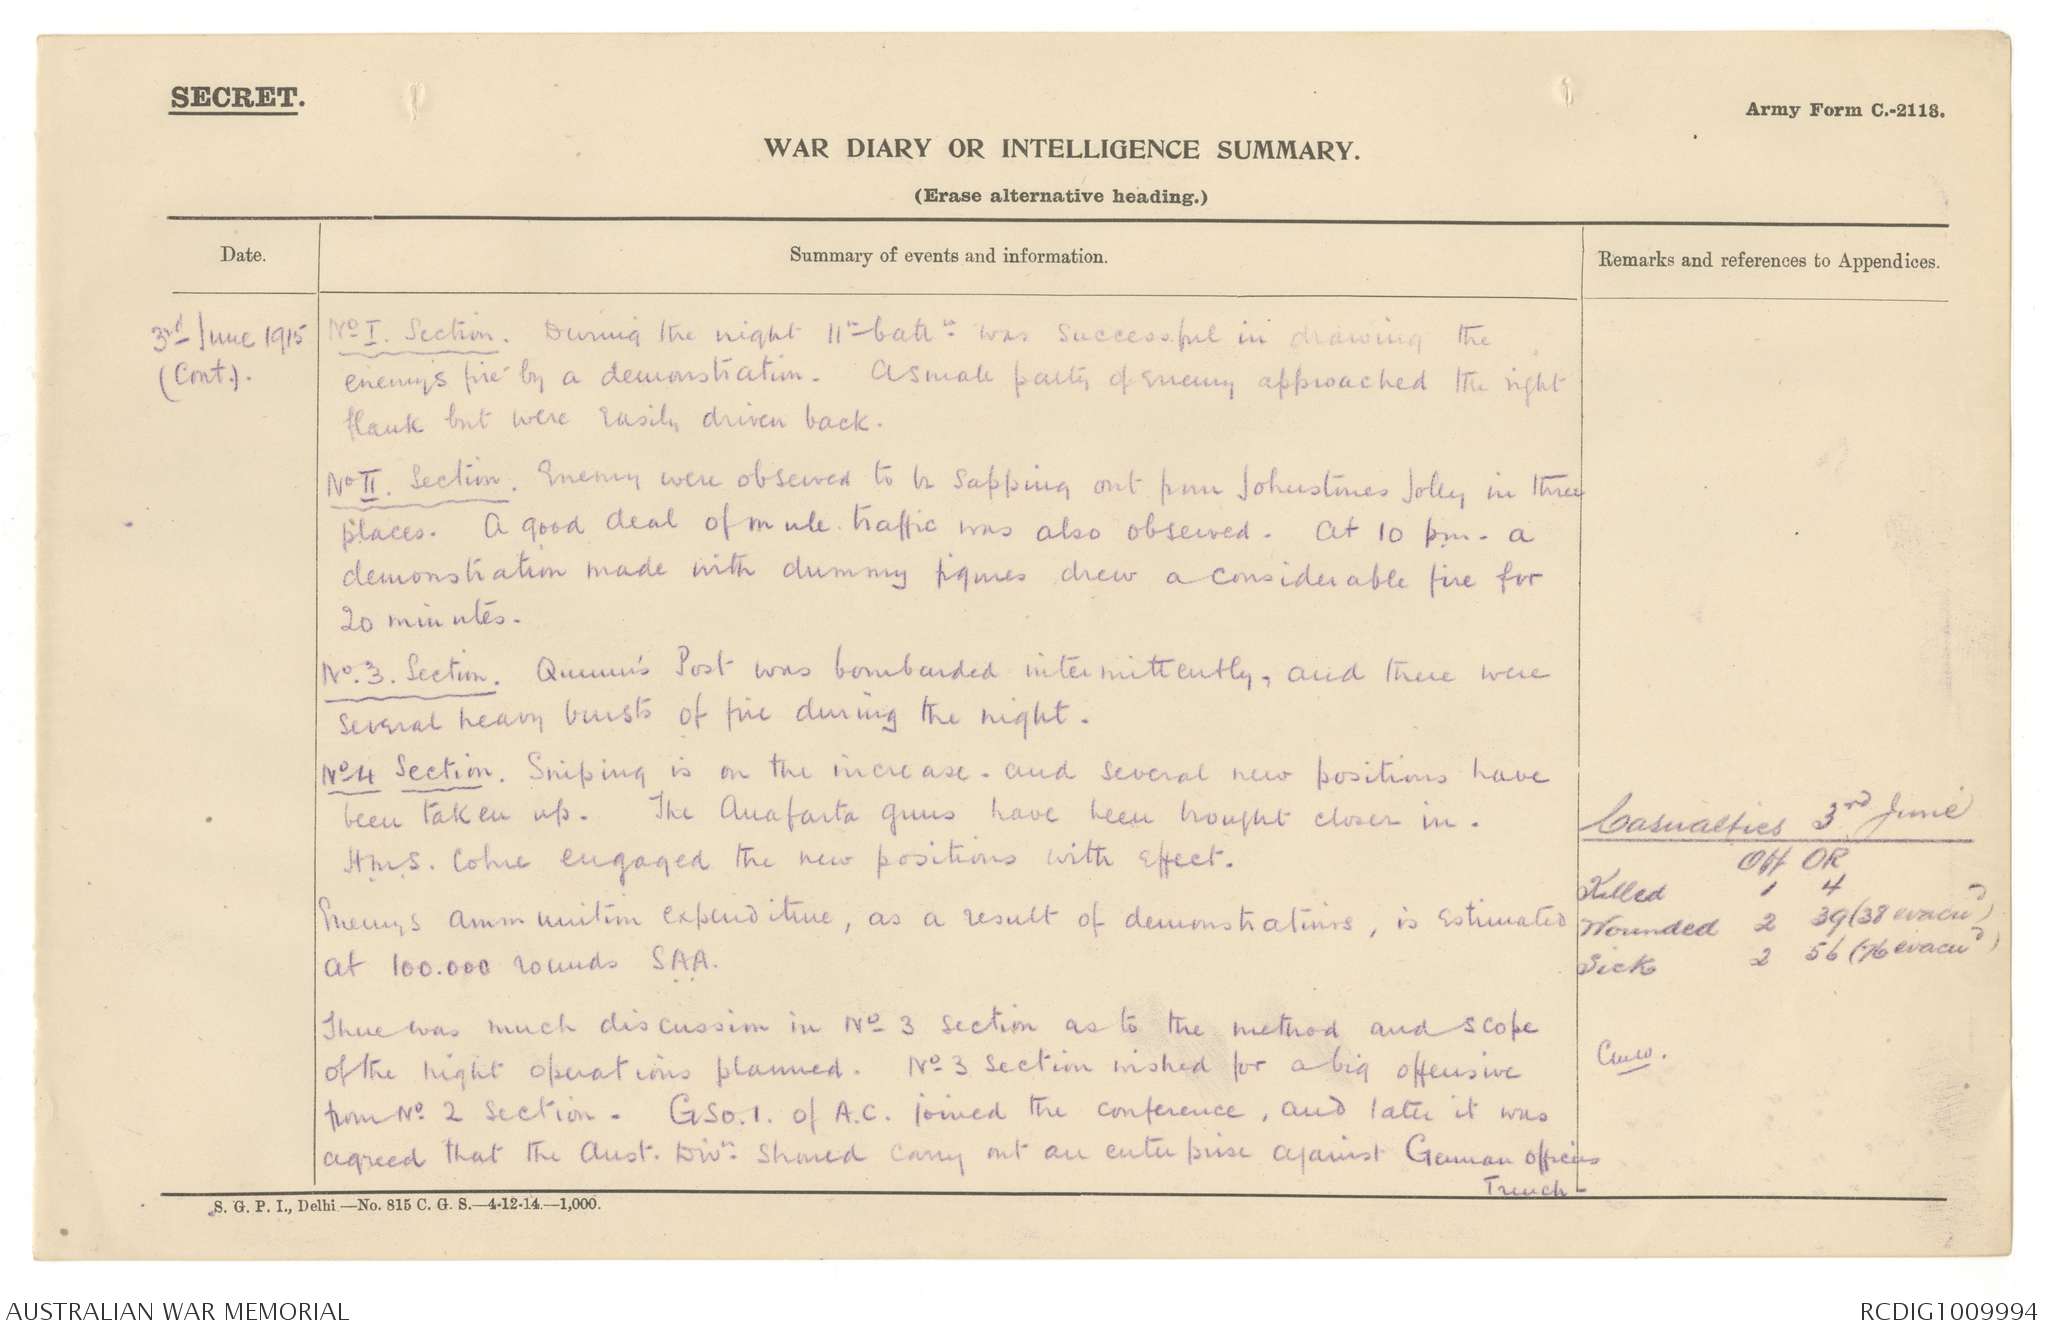 SECRET.
Army Form C.-2118.
WAR DIARY OR INTELLIGENCE SUMMARY.
(Erase alternative heading.)
Date.
Summary of events and information.
Remarks and references to Appendices.
3rd June 1915
(Cont.).
No I. Section. During the night 11th battn was successful in drawing the
enemy's fire by a demonstration. A small party of Enemy approached the right
flank but were easily driven back.
No II. Section. Enemy were observed to be sapping out from Johnstones Jolly in three
places. A good deal of mule traffic was also observed. At 10 pm. a
demonstration made with dummy figures drew a considerable fire for
20 minutes.
No. 3. Section. Quinn's Post was bombarded intermittently, and there were
several heavy bursts of fire during the night.
No 4 Section. Sniping is on the increase - and several new positions have
been taken up. The Anafarta guns have been brought closer in.
H.M.S. Colne engaged the new positions with effect.
Enemy's ammunition expenditure, as a result of demonstrations, is estimated
at 100.000 rounds SAA.
There was much discussion in No 3 section as to the method and scope
of the night operations planned. No 3 Section wished for a big offensive
from No 2 Section. GSO.1. of A.C. joined the conference, and later it was
agreed that the Aust. Divn should carry out an enterprise against German officers
Trench -
Casualties 3rd June
Off OR
Killed 1 4
Wounded 2 39 (38 evacud)
Sick 2 56 (76 evacud)
S. G. P. I., Delhi.—No. 815 C. G. S.—4-12-14.—1,000.
AUSTRALIAN WAR MEMORIAL
RCDIG1009994